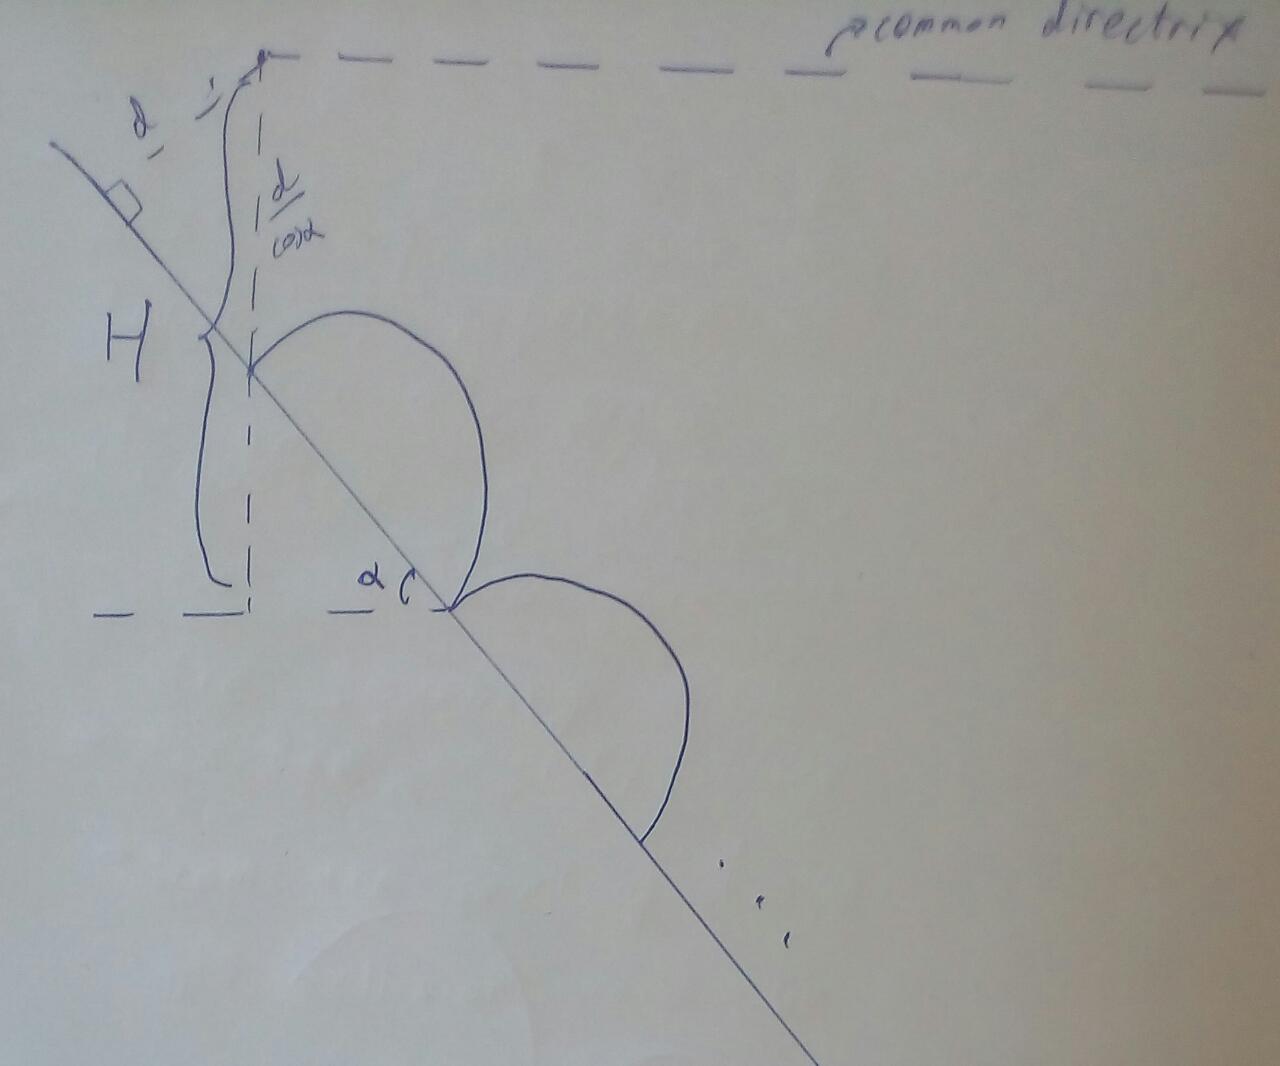 common directrix
d
d
cosα
H
α